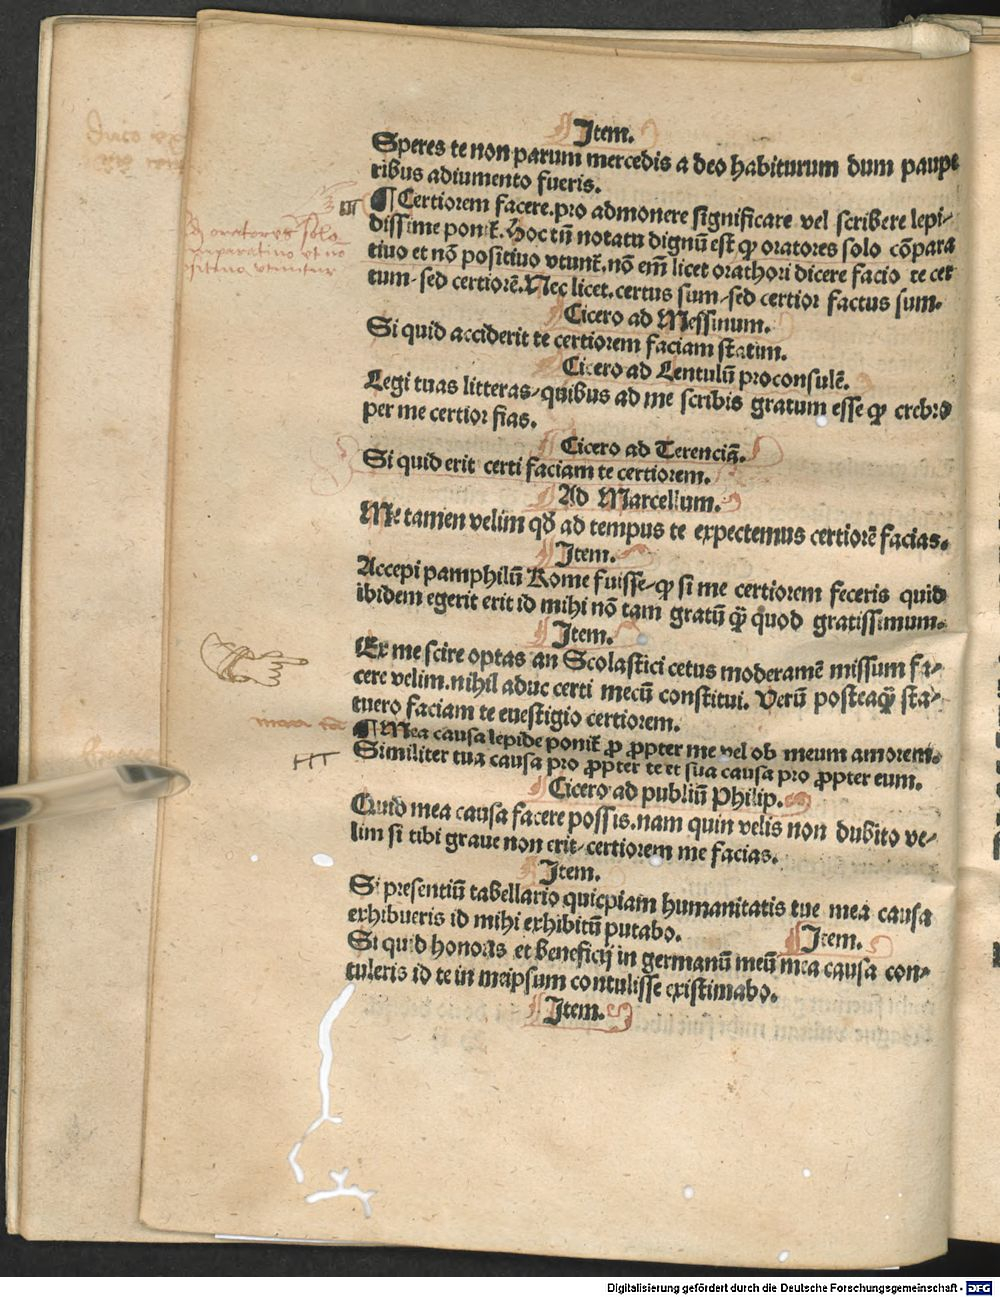 Item.
Speres te non parum mercedis a deo habiturum dum paupe
ribus adiumento fueris.
¶ Certiorem facere.pro admonere significare vel scribere lepi-
dissime ponit̃. Hoc tñ notatu dignũ est ꝙ oratores solo cõpara
tiuo et nõ positiuo vtunt̃.nõ em̃ licet orathori dicere facio te cer
tum-sed certiorẽ.Nec licet.certus sum-sed certior factus sum.
ꝙ oratores solo
comparatiuo et no
positiuo vtuntur
Cicero ad Messinum.
Si quid acciderit te certiorem faciam statim.
Cicero ad Lentulũ proconsulẽ.
Legi tuas litteras-quibus ad me scribis gratum esse ꝙ crebro
per me certior fias.
Cicero ad Terenciã.
Si quid erit certi faciam te certiorem.
Ad Marcellum.
Me tamen velim qđ ad tempus te expectemus certiorẽ facias.
Item.
Accepi pamphilũ Rome fuisse-ꝙ si me certiorem feceris quid
ibidem egerit erit id mihi nõ tam gratũ ꝙ̃ quod gratissimum.
Item.
Ex me scire optas an Scolastici cetus moderamẽ missum fa-
cere velim.nihil aduc certi mecũ constitui. Verũ posteaꝙ̃ sta-
tuero faciam te euestigio certiorem.
mea cã
¶ Mea causa lepide ponit̃ ꝓ ꝓpter me vel ob meum amorem.
Similiter tua causa pro ꝓpter te et sua causa pro ꝓpter eum.
Cicero ad publiũ Philip.
Quid mea causa facere possis.nam quin velis non dubito ve-
lim si tibi graue non erit-certiorem me facias.
Item.
Si presentiũ tabellario quicpiam humanitatis tue mea causa
exhibueris id mihi exhibitũ putabo.
Item.
Si quid honoris et beneficij in germanũ meũ mea causa con-
tuleris id te in meipsum contulisse existimabo.
Item.
Digitalisierung gefördert durch die Deutsche Forschungsgemeinschaft - DFG